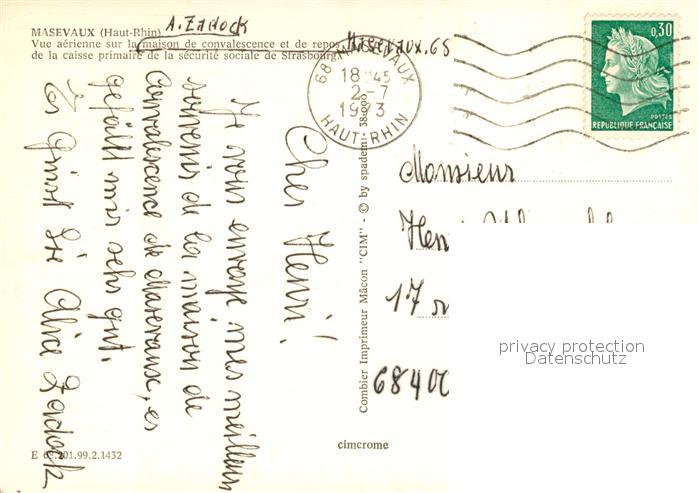 A. Zadock
Masevaux. 68
MASEVAUX (Haut-Rhin)
Vue aérienne sur la maison de convalescence et de repos
de la caisse primaire de la sécurité sociale de Strasbourg.
68 MASEVAUX
18 H 45
2-7
1973
HAUT-RHIN
0,30
POSTES
REPUBLIQUE FRANÇAISE
Cher Henri!
Je vous envoye mes meilleurs
souvenirs de la maison de
Convalescence de Masevaux, es
gefällt mir sehr gut.
Es Grüst Sie Alice Zadock
Combier Imprimeur Mâcon "CIM" - © by spadem
Monsieur
Hen
17 r
68400
privacy protection
Datenschutz
cimcrome
E 68.201.99.2.1432